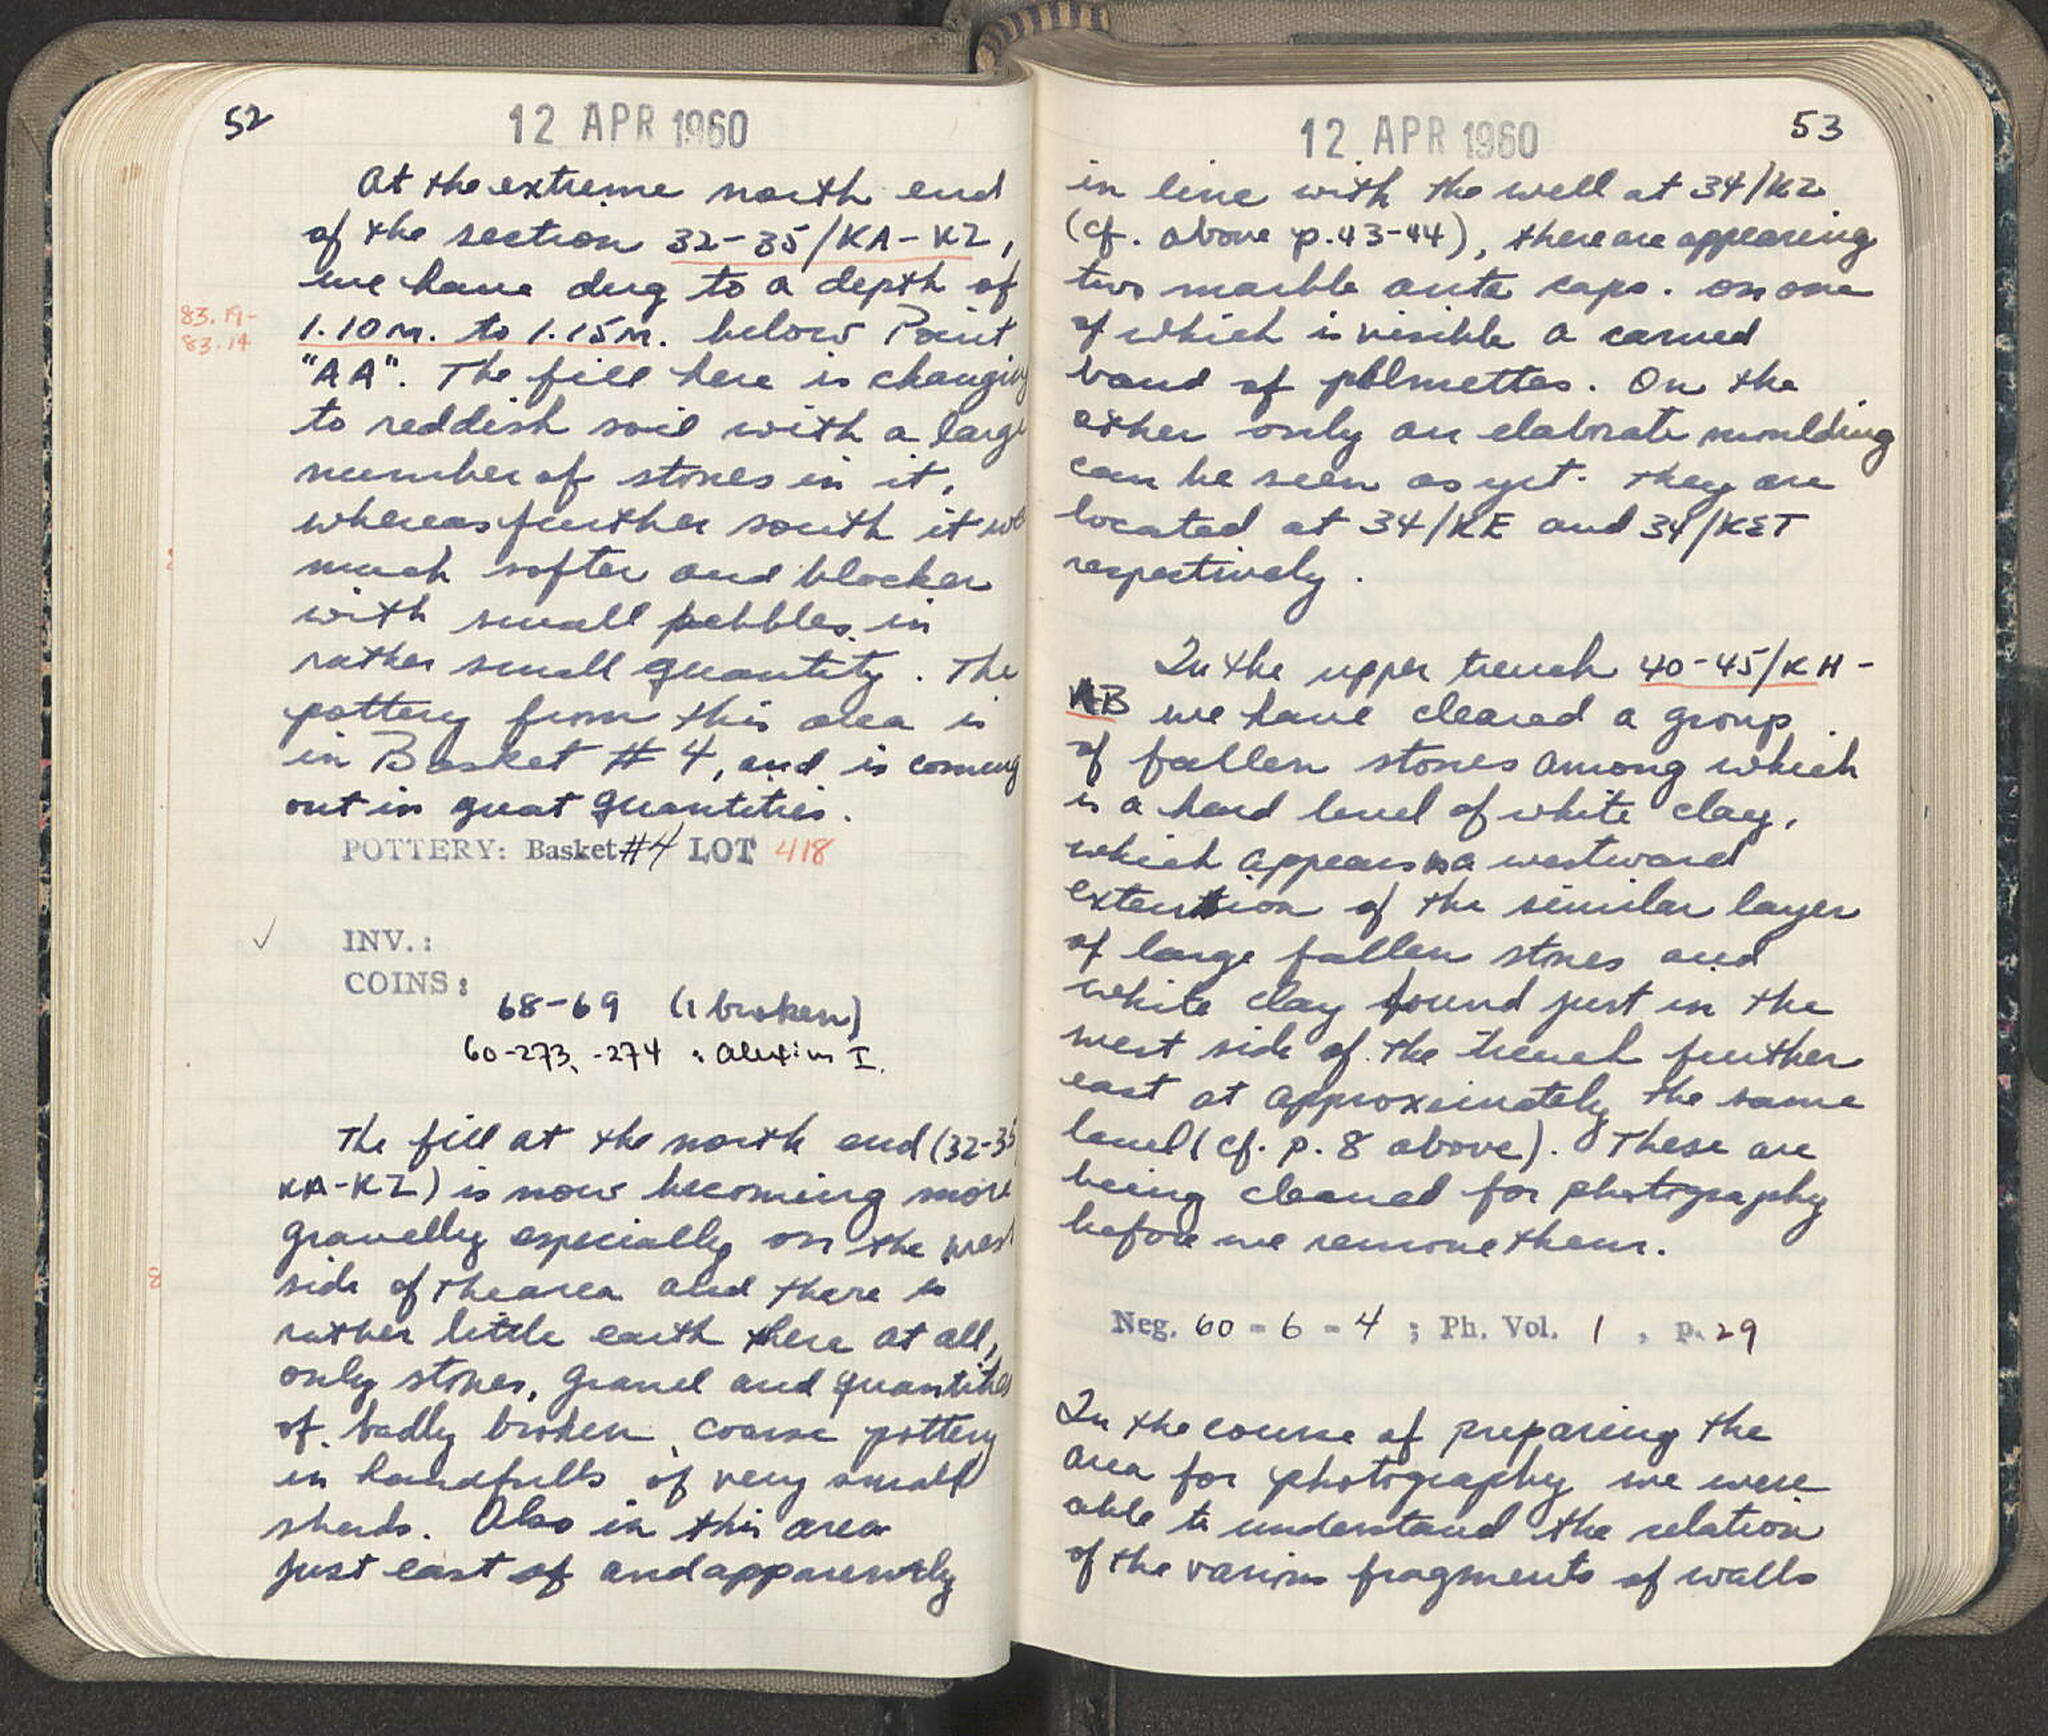 52
12 APR 1960
At the extreme north end
of the section 32-35/KA-KZ,
we have dug to a depth of
83.19-
83.14
1.10m. to 1.15m. below Point
"AA". The fill here is changing
to reddish soil with a large
number of stones in it,
whereas further south it was
much softer and blacker
with small pebbles in
rather small quantity. The
pottery from this area is
in Basket #4, and is coming
out in great quantities.
POTTERY: Basket #4 LOT 418
✓ INV.:
COINS:
68-69 (1 broken)
60-273, -274 : Alexius I.
The fill at the north end (32-35
KA-KZ) is now becoming more
gravelly especially on the west
side of the area and there is
rather little earth there at all,
only stones, gravel and quantities
of badly broken coarse pottery
in handfulls of very small
sherds. Also in this area
just east of and apparently
53
12 APR 1960
in line with the well at 34/KZ
(cf. above p.43-44), there are appearing
two marble anta caps. on one
of which is visible a carved
band of palmettes. On the
other only an elaborate moulding
can be seen as yet. They are
located at 34/KE and 34/KΣT
respectively.
In the upper trench 40-45/KH-
ΛB we have cleared a group
of fallen stones among which
is a hard level of white clay,
which appears as a westward
extension of the similar layer
of large fallen stones and
white clay found just in the
west side of the trench further
east at approximately the same
level (cf. p. 8 above). These are
being cleaned for photography
before we remove them.
Neg. 60-6-4; Ph. Vol. 1, p. 29
In the course of preparing the
area for photography we were
able to understand the relation
of the various fragments of walls